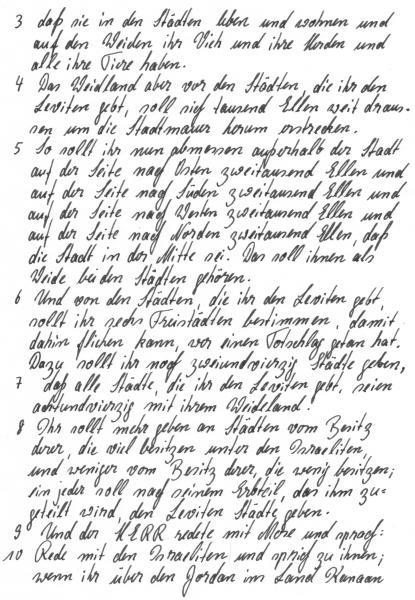 3 daß sie in den Städten leben und wohnen und
auf den Weiden ihr Vieh und ihre Herden und
alle ihre Tiere haben.
4 Das Weidland aber vor den Städten, die ihr den
Leviten gebt, soll sich tausend Ellen weit draus-
sen um die Stadtmauer herum erstrecken.
5 So sollt ihr nun abmessen außerhalb der Stadt
auf der Seite nach Osten zweitausend Ellen und
auf der Seite nach Süden zweitausend Ellen und
auf der Seite nach Westen zweitausend Ellen und
auf der Seite nach Norden zweitausend Ellen, daß
die Stadt in der Mitte sei. Das soll ihnen als
Weide bei den Städten gehören.
6 Und von den Städten, die ihr den Leviten gebt,
sollt ihr sechs Freistädten bestimmen, damit
dahin fliehen kann, wer einen Totschlag getan hat.
Dazu sollt ihr noch zweiundvierzig Städte geben,
7 daß alle Städte, die ihr den Leviten gebt, seien
achtundvierzig mit ihrem Weideland.
8 Ihr sollt mehr geben an Städten vom Besitz
derer, die viel besitzen unter den Israeliten,
und weniger vom Besitz derer, die wenig besitzen;
ein jeder soll nach seinem Erbteil, das ihm zu-
geteilt wird, den Leviten Städte geben.
9 Und der HERR redete mit Mose und sprach:
10 Rede mit den Israeliten und sprich zu ihnen;
wenn ihr über den Jordan ins Land Kanaan